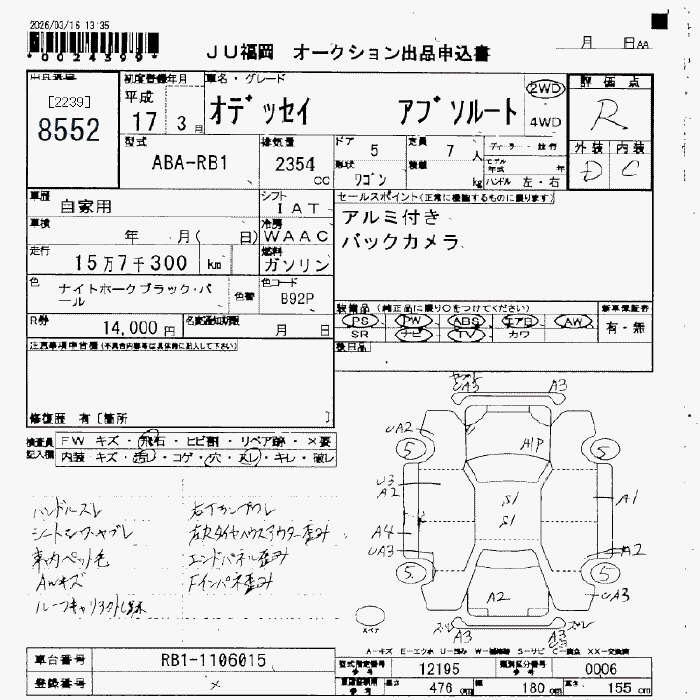 2026/03/16 13:35
*0024399*
JU福岡 オークション出品申込書
月 日AA
初度登録年月
車名・グレード
評価点
[2239]
8552
平成
17 3月
オデッセイ アブソルート
2WD
4WD
R
型式
ABA-RB1
排気量
2354
cc
ドア 5
定員 7 人
形状 ワゴン
積載 kg
ハンドル 左・右
外装 内装
D C
車歴
自家用
シフト
IAT
セールスポイント(正常に機能するものに限ります)
アルミ付き
バックカメラ
車検
年 月( 日)
冷房
WAAC
走行
15万7千300 km
燃料
ガソリン
色
ナイトホークブラック・パール
色替
色コード
B92P
装備品 (純正品に限り○をつけてください)
新車保証書
PS PW ABS エアB AW
SR ナビ TV カワ
有・無
R券
14,000 円
名変通知期限
月 日
注意事項申告欄(不具合内容等は具体的に記入して下さい)
後日品
修復歴 有[箇所 ]
検査員
記入欄
FW キズ・飛石・ヒビ割・リペア跡・X要
内装 キズ・汚レ・コゲ・穴・スレ・キレ・破レ
ハンドルスレ
シートシワ・ヤブレ
車内ペット毛
AWキズ
エンドパネル歪み
Fインパネ歪み
UA3
A3
UA2
A/P
5
5
U3
A2
S1
S1
A1
A4
UA3
A2
5
5
UA3
A2
A3
A3
スペア
A-キズ E-エクボ U-凹み W-補修跡 S-サビ C-腐食 XX-交換済
車台番号
RB1-1106015
登録番号
型式指定番号
12195
類別区分番号
0006
長さ 476 cm
幅 180 cm
高さ 155 cm